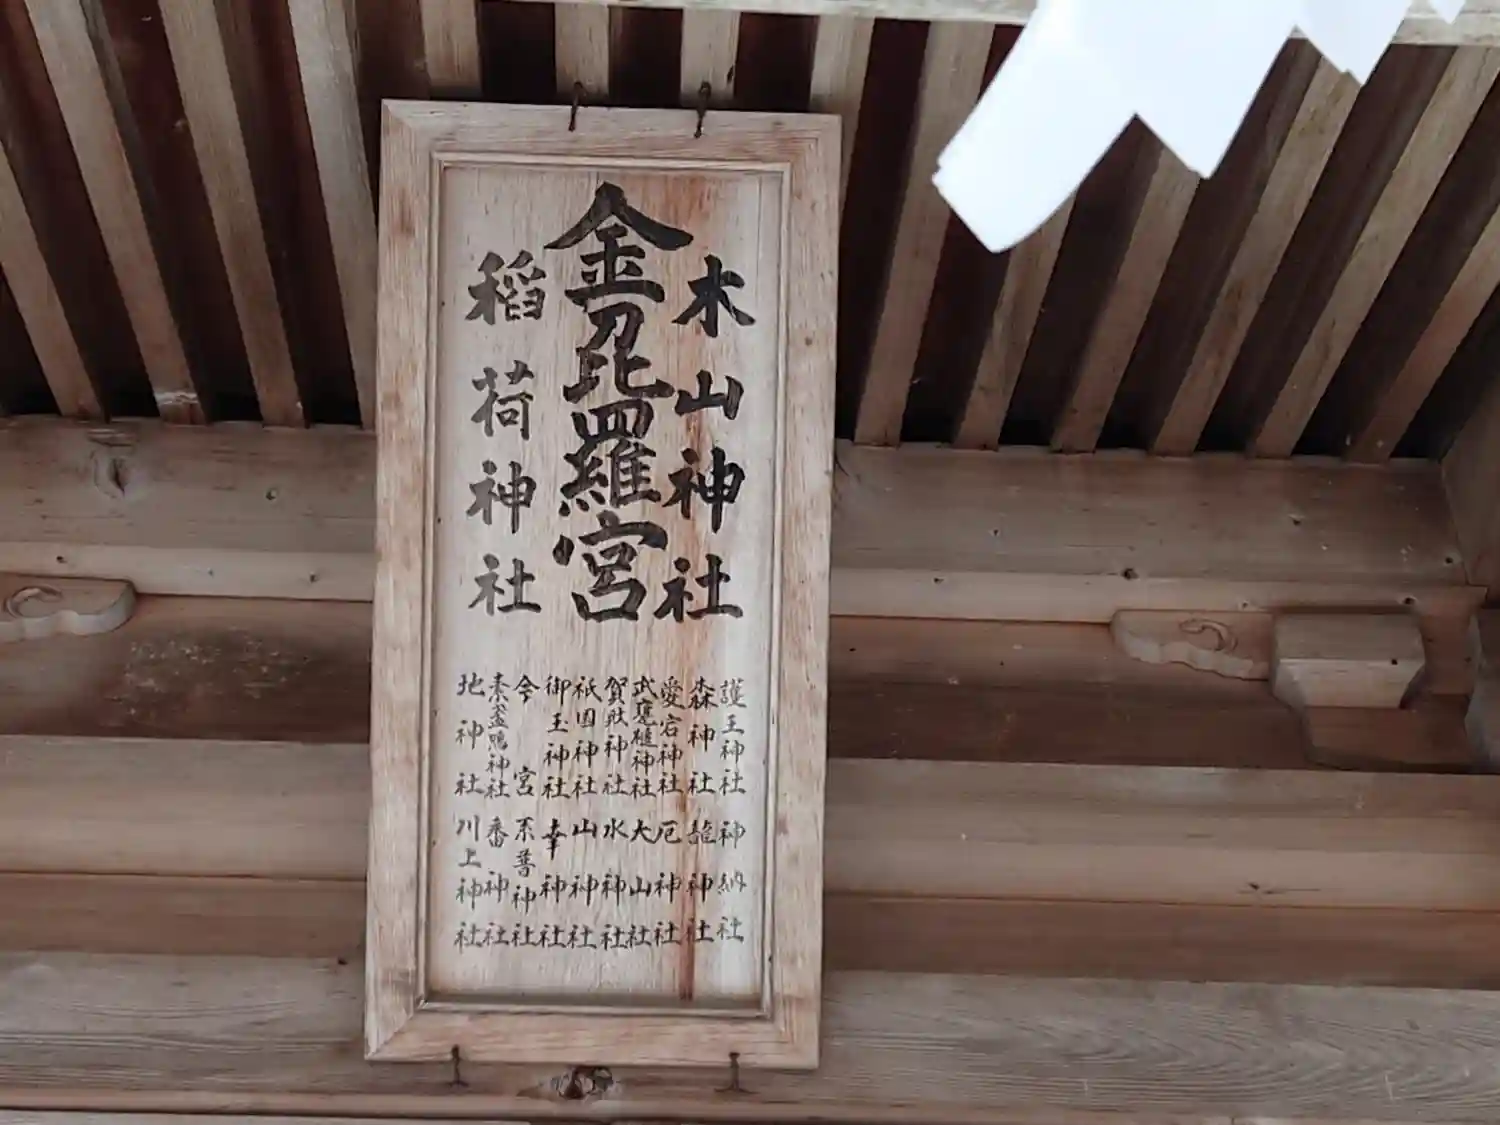 木山神社
金刀毘羅宮
稲荷神社
護王神社
森神社
愛宕神社
武甕槌神社
賀茂神社
祇園神社
御玉神社
今宮
素盞嗚神社
地神社
神納社
龍神社
厄神社
大山社
水神社
山神社
幸神社
番神社
川上神社